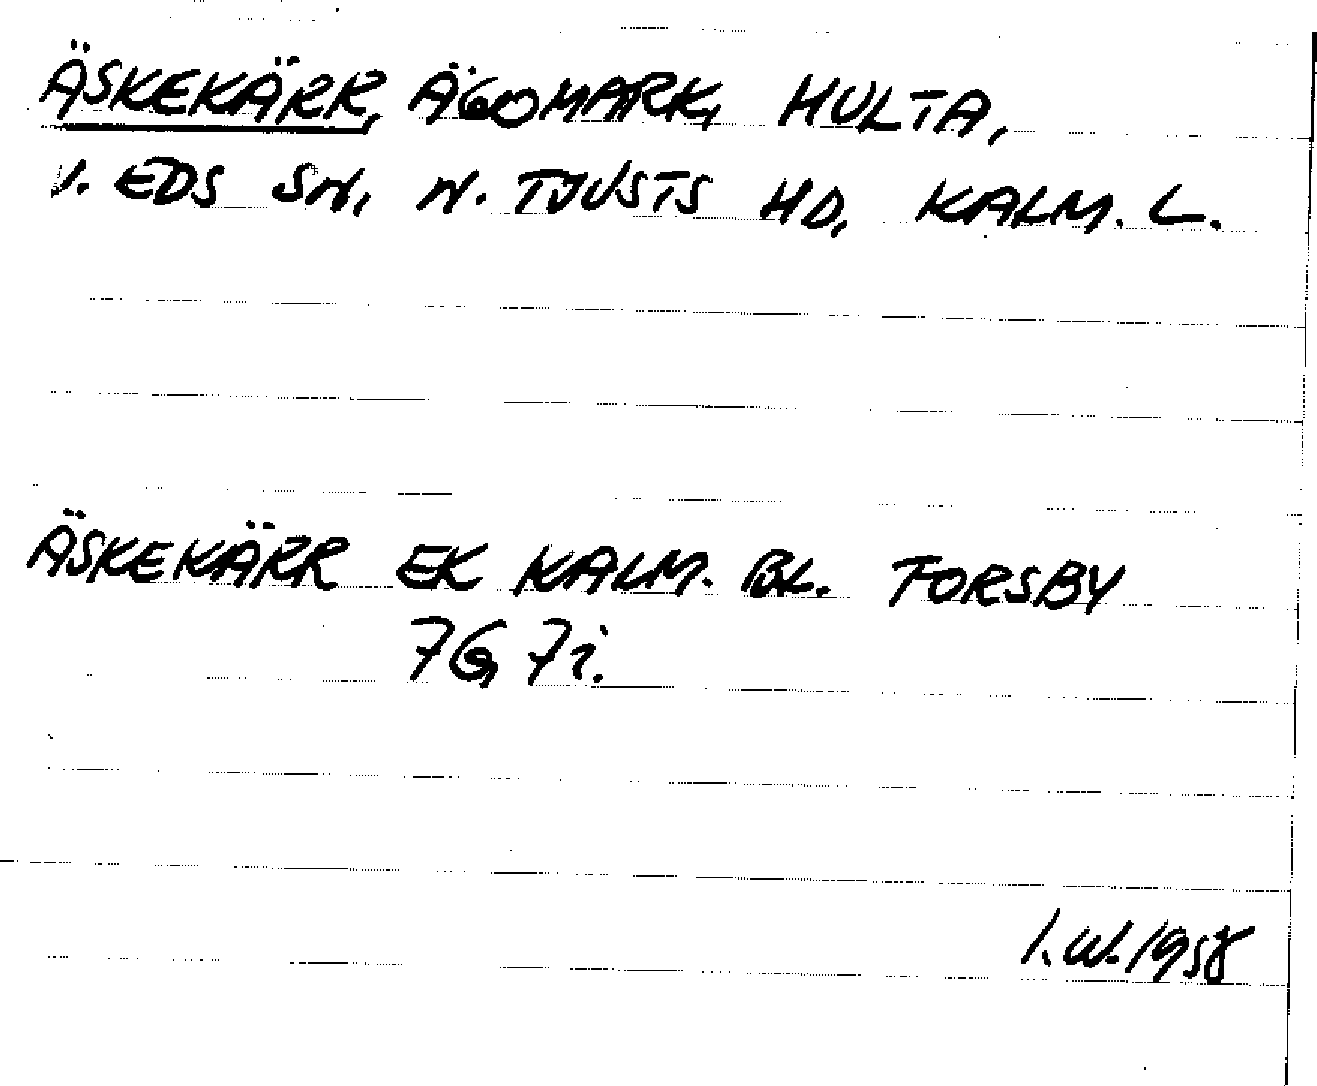 ÄSKEKÄRR, ÄGOMARK, HULTA,
V. EDS SN, N. TJUSTS HD, KALM. L.
ÄSKEKÄRR EK KALM. BL. TORSBY
7G 7i.
I.W. 1958